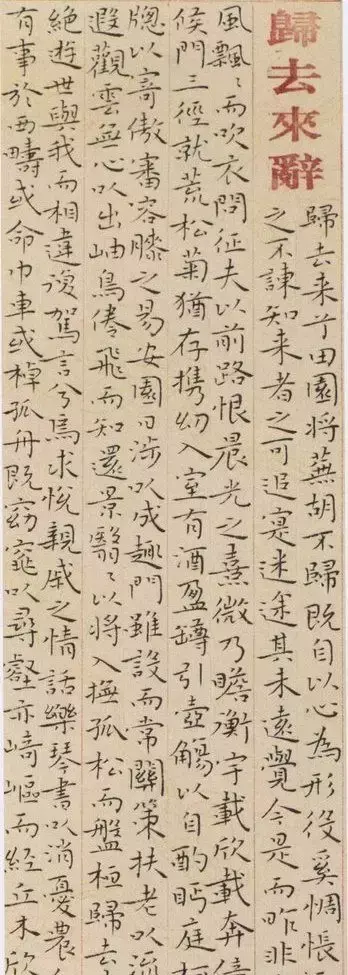 歸去來辭
歸去来兮田園將蕪胡不歸既自以心為形役奚惆悵
之不諫知来者之可追寔迷途其未遠覺今是而昨非
風飄〻而吹衣問征夫以前路恨晨光之熹微乃瞻衡宇載欣載奔
侯門三徑就荒松菊猶存携幼入室有酒盈罇引壺觴以自酌眄庭
牕以寄傲審容膝之易安園日涉以成趣門雖設而常關策扶老以流
遐觀雲無心以出岫鳥倦飛而知還景翳〻以將入撫孤松而盤桓歸去
絕遊世與我而相違復駕言兮焉求悅親戚之情話樂琴書以消憂農
有事於西疇或命巾車或棹孤舟既窈窕以尋壑亦崎嶇而經丘木欣